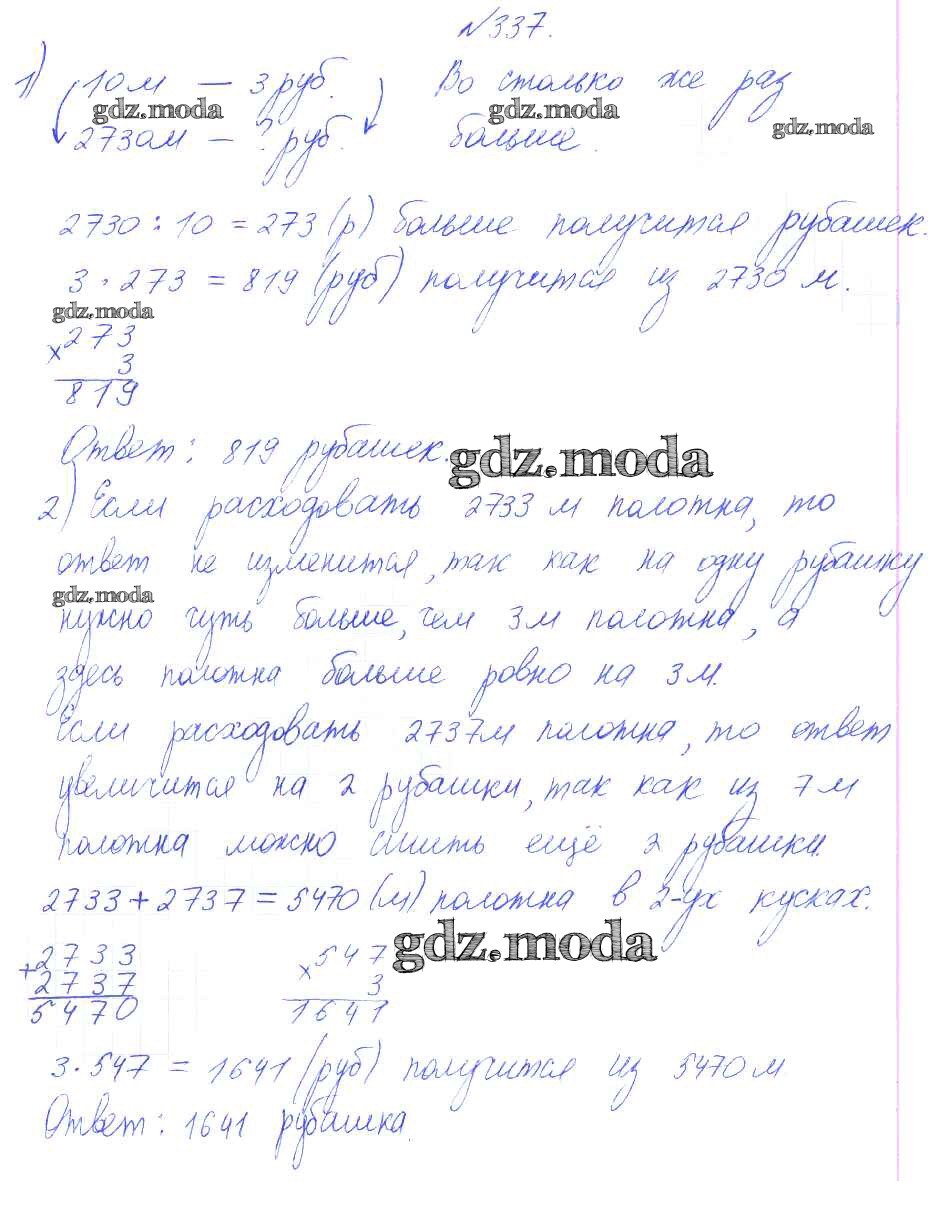 №337.
1) 10м — 3 руб. Во столько же раз
gdz.moda gdz.moda gdz.moda
2730м — ? руб. больше.
2730 : 10 = 273 (р) больше получится рубашек.
3 · 273 = 819 (руб) получится из 2730 м.
gdz.moda
× 273
3
819
Ответ: 819 рубашек.
gdz.moda
2) Если расходовать 2733 м полотна, то
ответ не изменится, так как на одну рубашку
gdz.moda
нужно чуть больше, чем 3м полотна, а
здесь полотна больше ровно на 3м.
Если расходовать 2737м полотна, то ответ
увеличится на 2 рубашки, так как из 7 м
полотна можно сшить ещё 2 рубашки.
2733 + 2737 = 5470 (м) полотна в 2-ух кусках.
gdz.moda
+ 2733 × 547
2737 3
5470 1641
3 · 547 = 1641 (руб) получится из 5470 м
Ответ: 1641 рубашка.